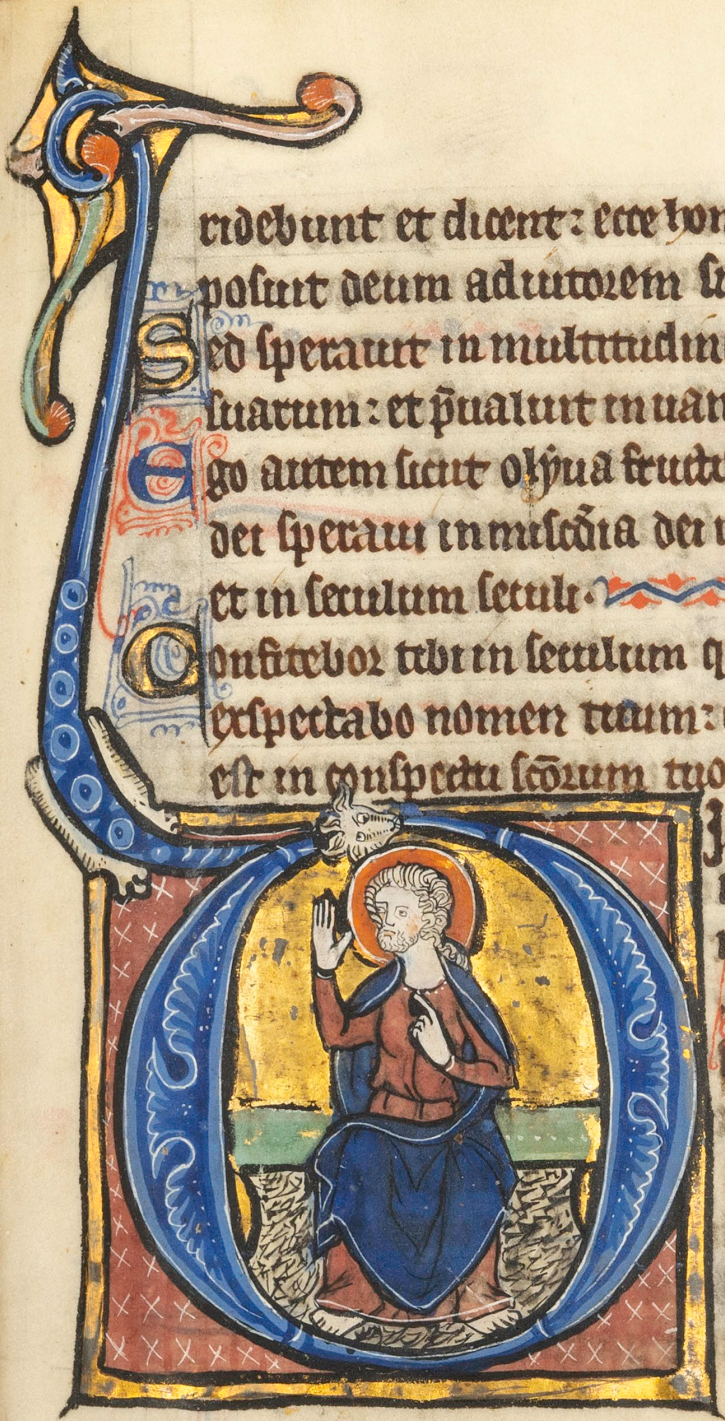 ridebunt et dicent: ecce hom
posuit deum adiutorem su
Sed sperauit in multitudin
suarum: et p̄ualuit in uan
Ego autem sicut olyua fructi
dei speraui in misc̄dia dei i
et in seculum seculi.
Confitebor tibi in seculum q
exspectabo nomen tuum:
est in conspectu sc̄orum tuo